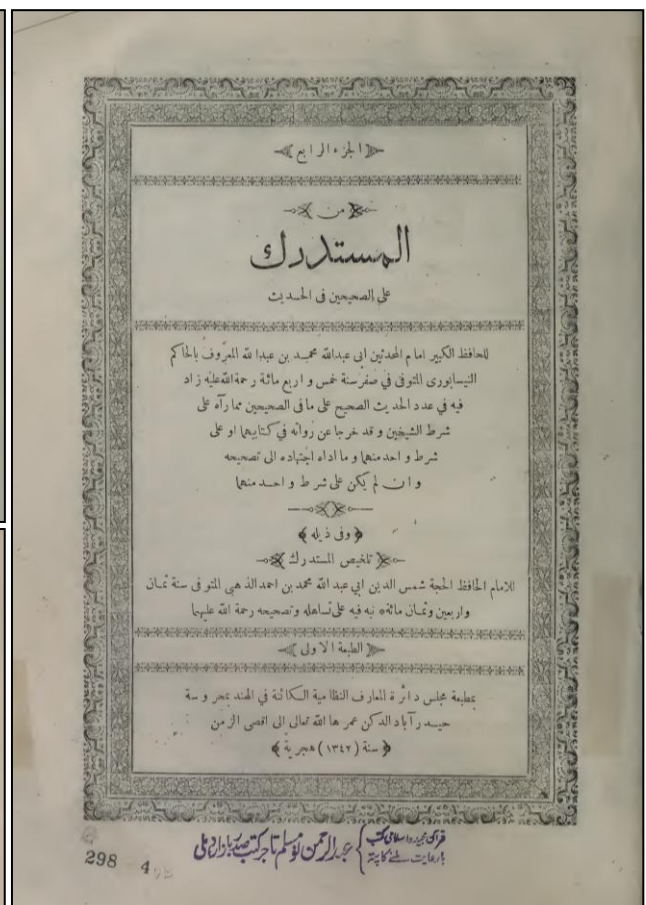 الجزء الرابع
من
المستدرك
على الصحيحين في الحديث
للحافظ الكبير امام المحدثين ابى عبدالله محمد بن عبدالله المعروف بالحاكم
النيسابورى المتوفى في صفر سنة خمس و اربع مائة رحمة الله عليه زاد
فيه في عدد الحديث الصحيح على ما فى الصحيحين مما رآه على
شرط الشيخين و قد خرجا عن رواته في كتابيهما او على
شرط و احد منهما و ما اداه اجتهاده الى تصحيحه
و ان لم يكن على شرط و احد منهما
﴿ وفى ذيله ﴾
تلخيص المستدرك
للامام الحافظ الحجة شمس الدين ابي عبد الله محمد بن احمد الذهبي المتوفى سنة ثمان
واربعين وثمان مائة نبه فيه على تساهله وتصحيحه رحمة الله عليهما
الطبعة الاولى
بمطبعة مجلس دائرة المعارف النظامية الكائنة في الهند بمحروسة
حيدر آباد الدكن عمرها الله تعالى الى اقصى الزمن
﴿ سنة (١٣٤٢) هجرية ﴾
قرآن مجید و اسلامی کتب
بارعایت ملنے کا پتہ
عبدالرحمن نومسلم تاجر کتب صدر بازار دہلی
298 4